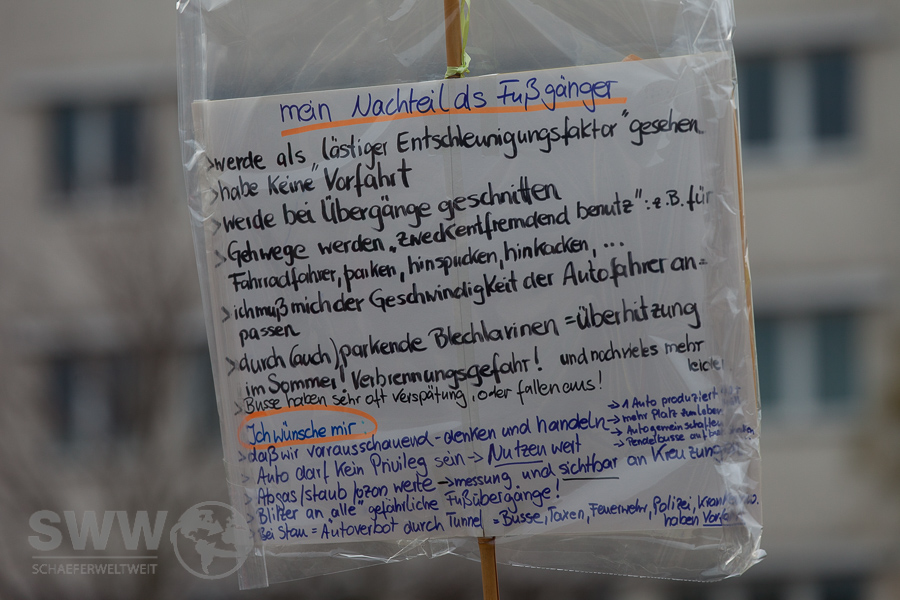 mein Nachteil als Fußgänger
>werde als „lästiger Entschleunigungsfaktor" gesehen
>habe keine Vorfahrt
>werde bei Übergänge geschnitten
>Gehwege werden „zweckentfremdend benutz": z.B. für
Fahrradfahrer, parken, hinspucken, hinkacken, ...
>ich muß mich der Geschwindigkeit der Autofahrer an=
passen
>durch (auch) parkende Blechlavinen = überhitzung
im Sommer! Verbrennungsgefahr! und noch vieles mehr
leider
>Busse haben sehr oft verspätung, oder fallen aus!
Ich wünsche mir:
→ 1 Auto produziert
→ mehr Platz zum leben
→ Autogemeinschaften
→ Pendelbusse
>daß wir vorausschauend-denken und handeln
>Auto darf kein Privileg sein → Nutzen weit
>Abgas/staub/ozon werte → messung und sichtbar an
>Blitzer an „alle" gefährliche Fußübergänge!
>Bei Stau = Autoverbot durch Tunnel = Busse, Taxen, Feuerwehr, Polizei,
haben
SWW
SCHAEFERWELTWEIT